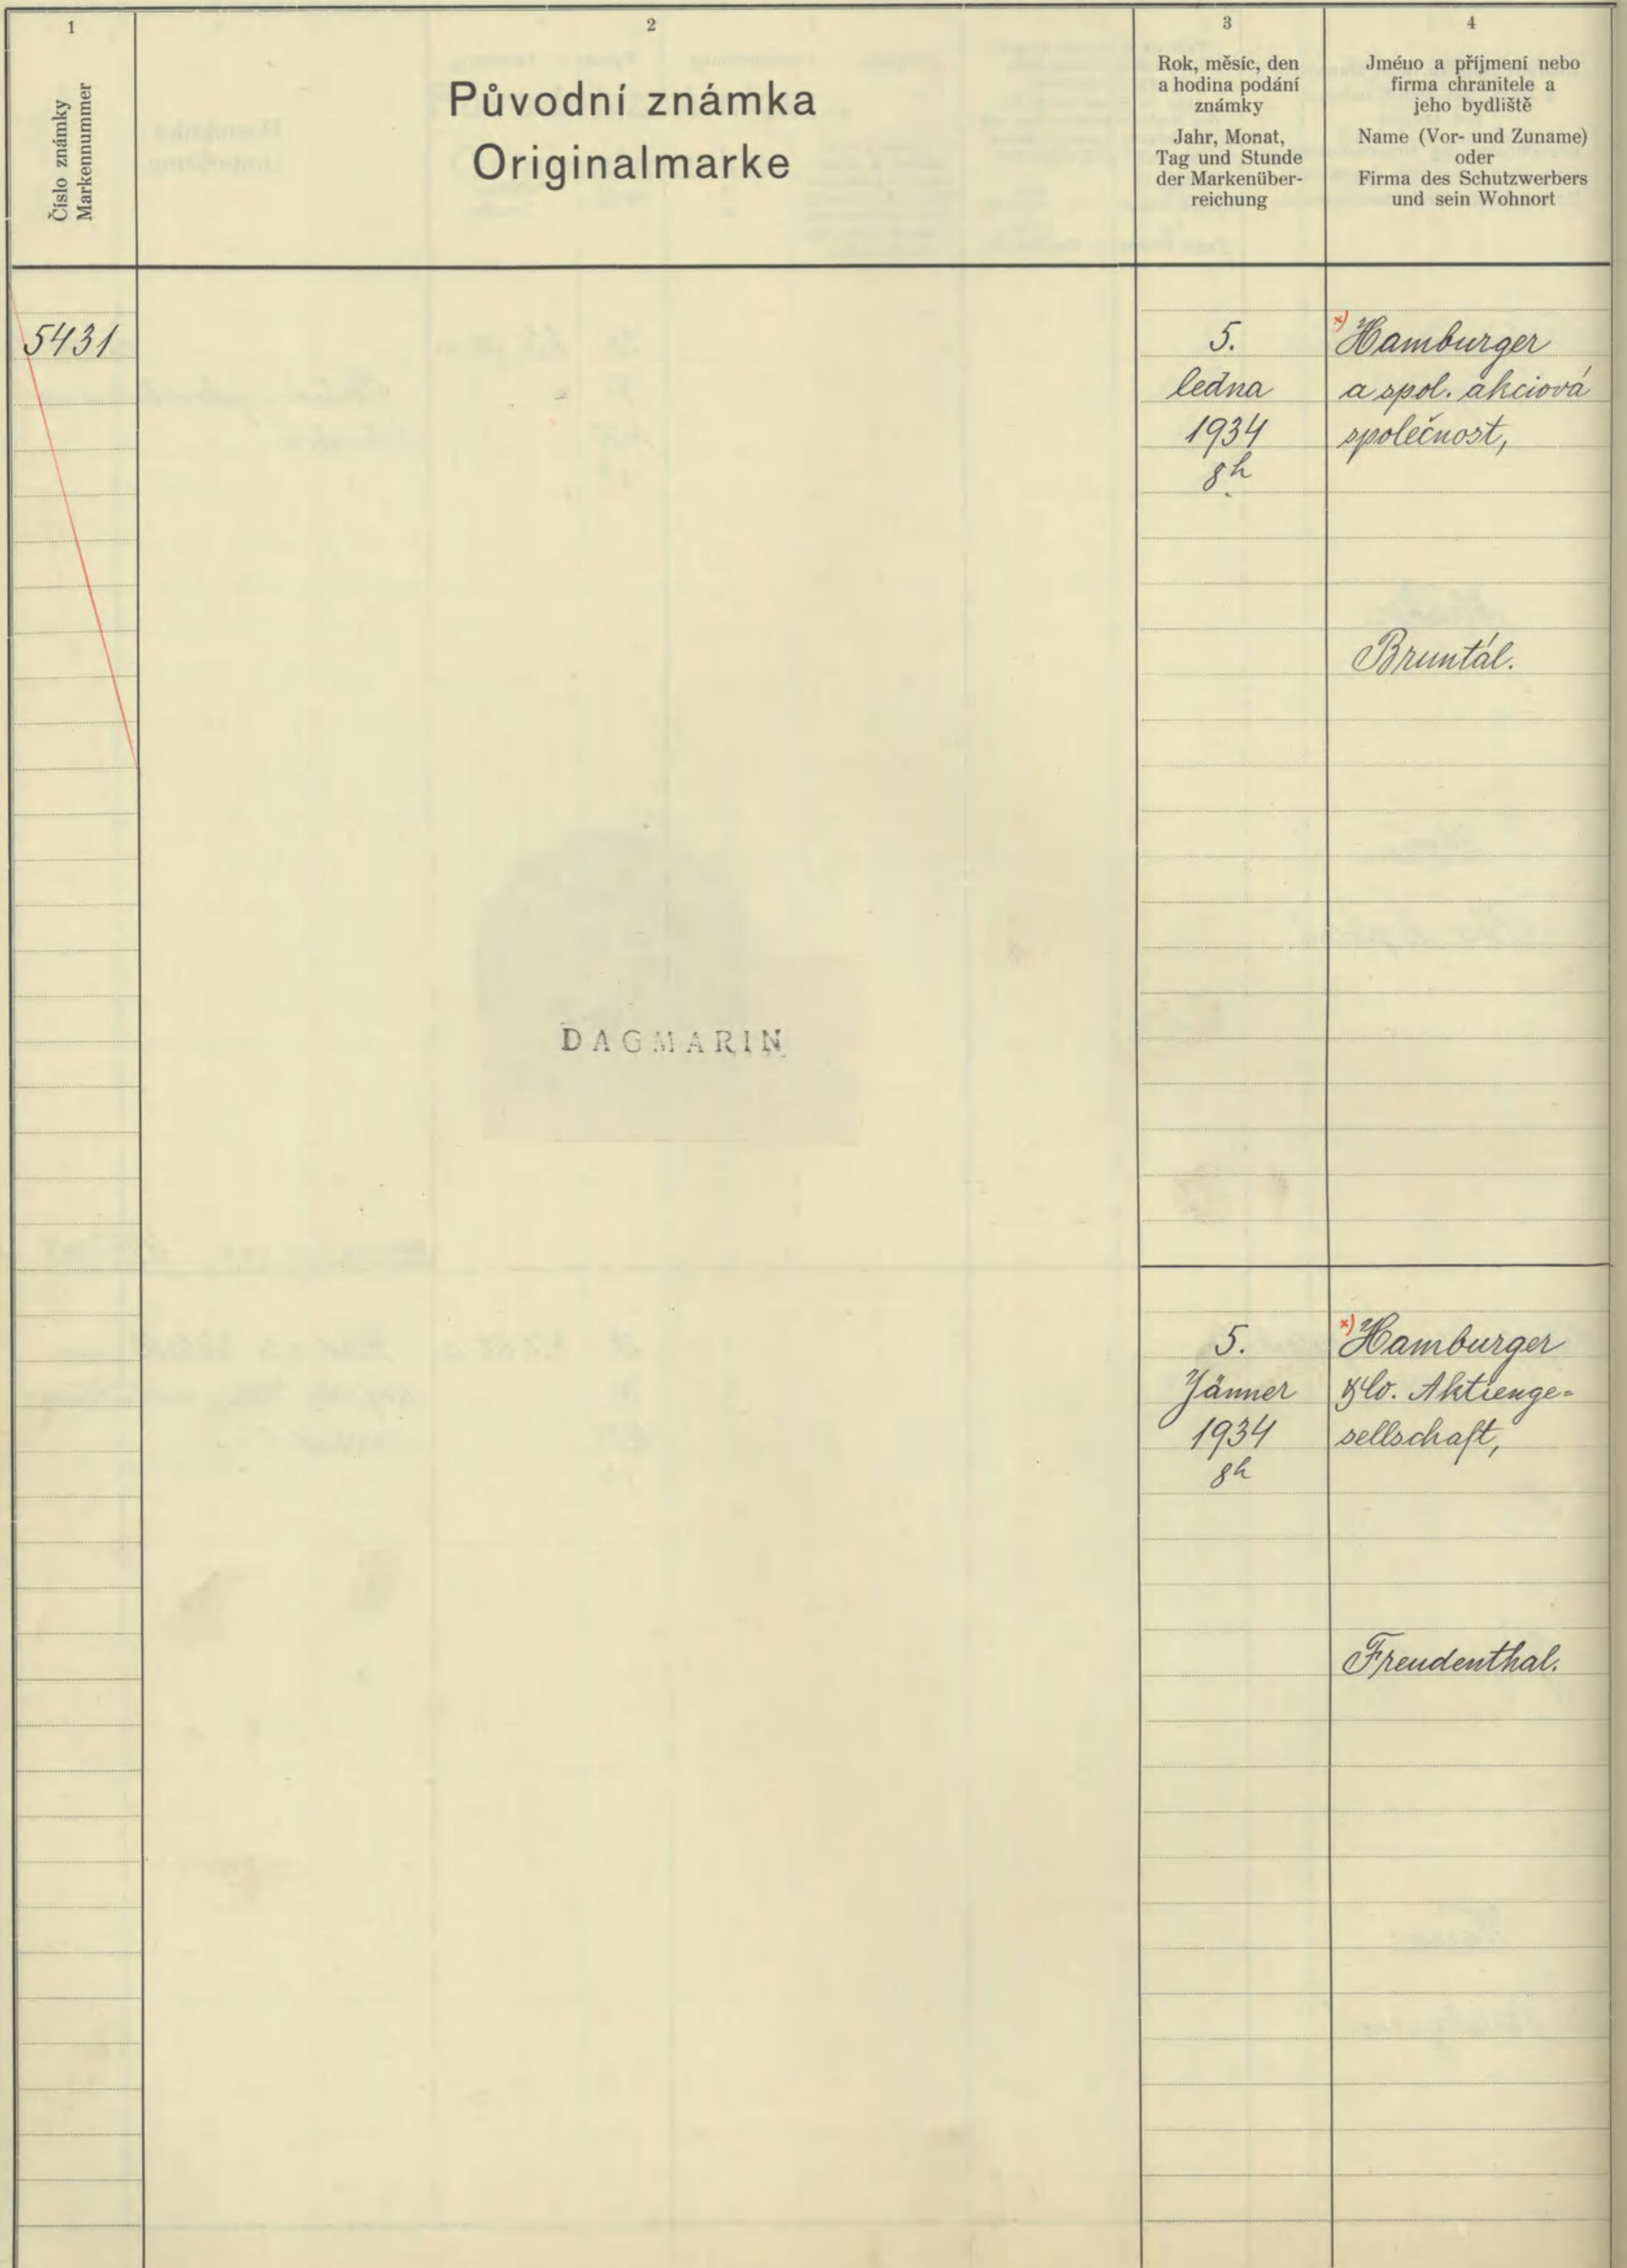 1
Číslo známky
Markennummer
2
Původní známka
Originalmarke
3
Rok, měsíc, den
a hodina podání
známky
Jahr, Monat,
Tag und Stunde
der Markenüber-
reichung
4
Jméno a příjmení nebo
firma chranitele a
jeho bydliště
Name (Vor- und Zuname)
oder
Firma des Schutzwerbers
und sein Wohnort
5431
5.
ledna
1934
8h
x) Hamburger
a spol. akciová
společnost,
Bruntál.
DAGMARIN
5.
Jänner
1934
8h
x) Hamburger
& Co. Aktienge=
sellschaft,
Freudenthal.